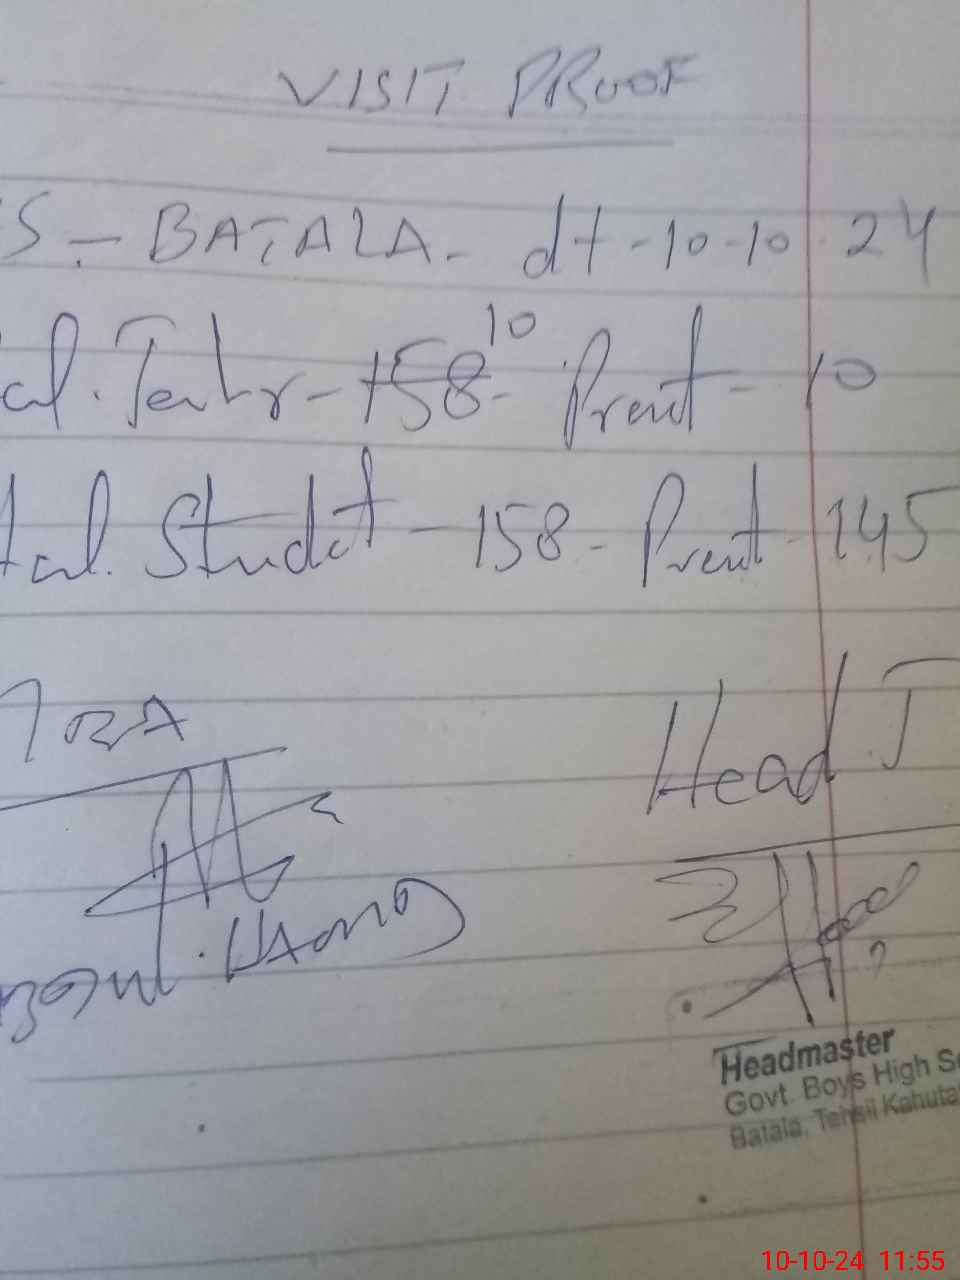 VISIT PROOF
S - BATALA - dt - 10-10-24
al. Teahr - 158 10 - Prent - 10
tal. Studet - 158 - Prent - 145
Head T
Headmaster
Govt Boys High S
Batala, Tehsil Kahuta
10-10-24 11:55